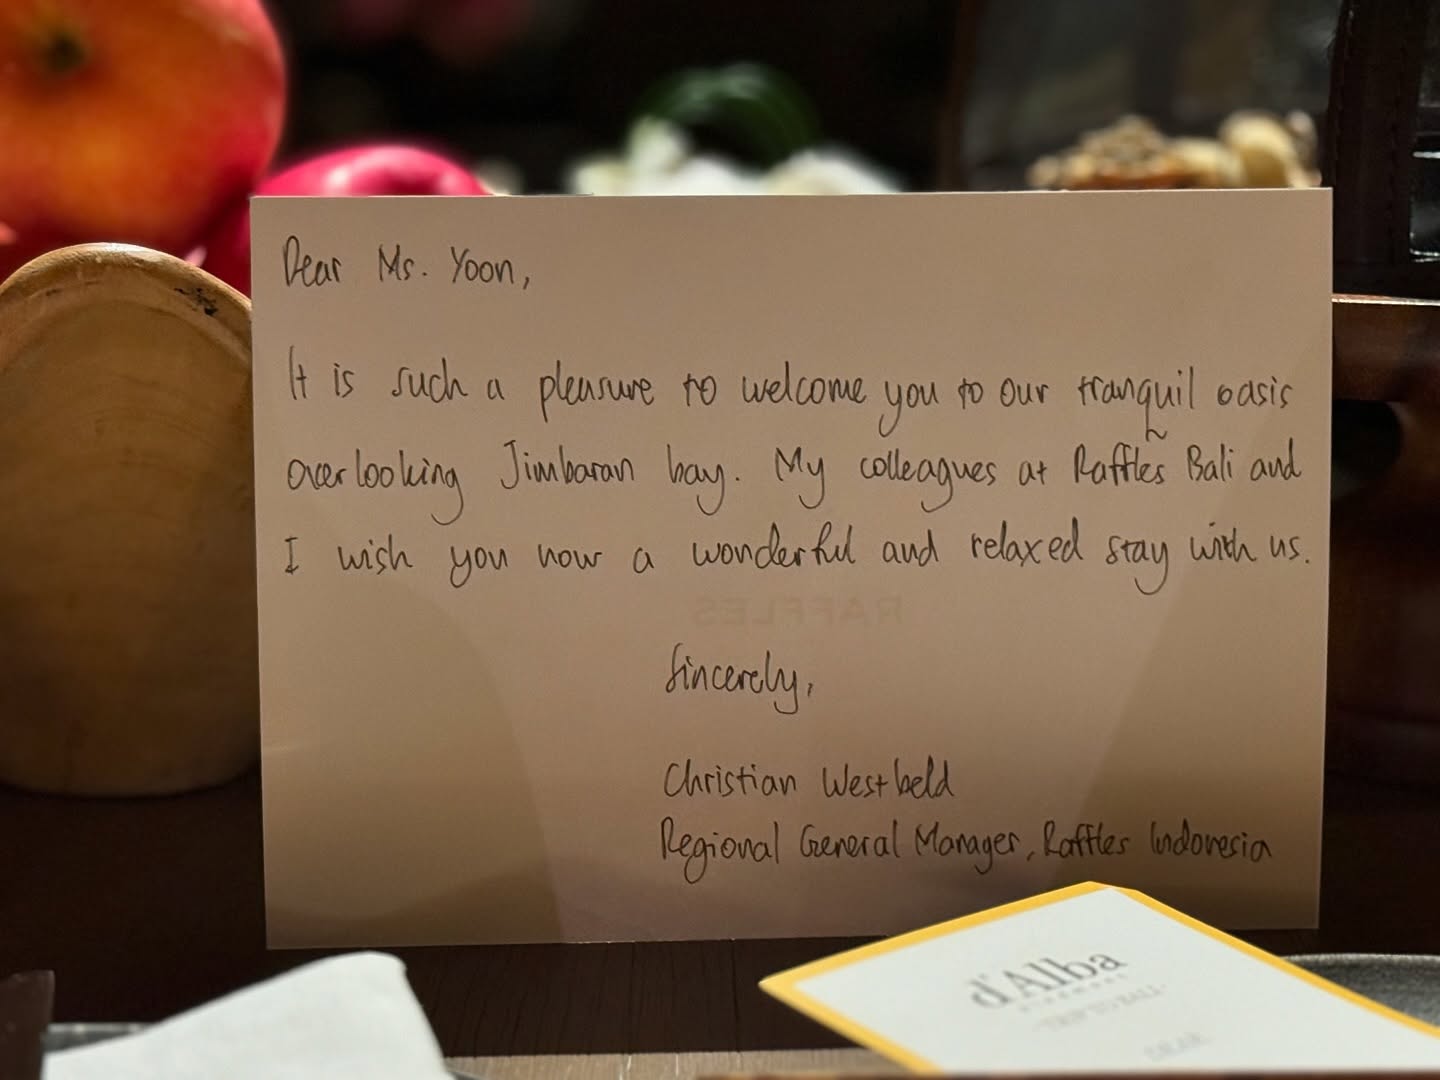 Dear Ms. Yoon,
It is such a pleasure to welcome you to our tranquil oasis
overlooking Jimbaran bay. My colleagues at Raffles Bali and
I wish you now a wonderful and relaxed stay with us.
RAFFLES
Sincerely,
Christian Westbeld
Regional General Manager, Raffles Indonesia
d'Alba
TRIP TO BALI
DEAR